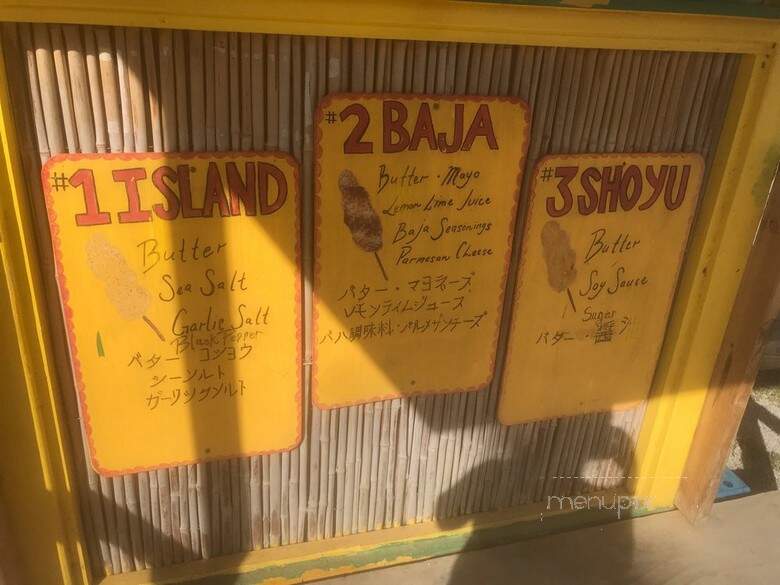 #1 ISLAND
Butter
Sea Salt
Garlic Salt
Black Pepper
バター コショウ
シーソルト
ガーリックソルト
#2 BAJA
Butter · Mayo
Lemon Lime Juice
Baja Seasonings
Parmesan Cheese
バター・マヨネーズ
レモンライムジュース
バハ調味料・パルメザンチーズ
#3 SHOYU
Butter
Soy Sauce
Sugar
バター・
menupix